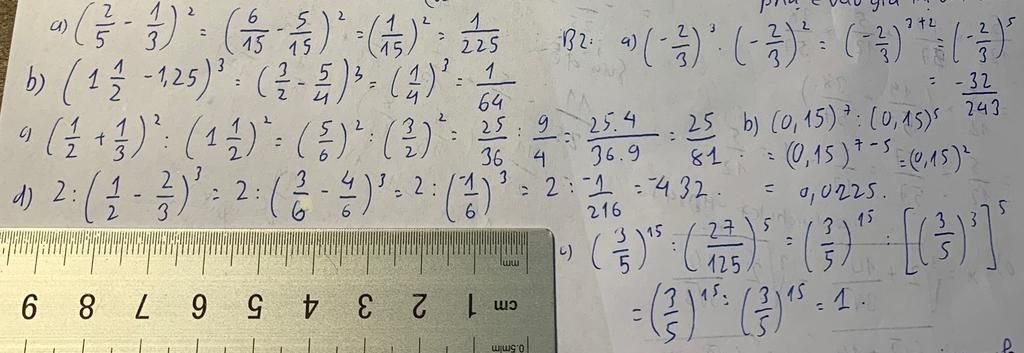 a) (2/5 - 1/3)² = (6/15 - 5/15)² = (1/15)² = 1/225
b) (1 1/2 - 1,25)³ = (3/2 - 5/4)³ = (1/4)³ = 1/64
c) (1/2 + 1/3)² : (1 1/2)² = (5/6)² : (3/2)² = 25/36 : 9/4 = 25.4/36.9 = 25/81
d) 2 : (1/2 - 2/3)³ = 2 : (3/6 - 4/6)³ = 2 : (-1/6)³ = 2 : -1/216 = -432.
B2: a) (-2/3)³ . (-2/3)² = (-2/3)³⁺² = (-2/3)⁵
= -32/243
b) (0,15)⁷ : (0,15)⁵
= (0,15)⁷⁻⁵ = (0,15)²
= 0,0225.
c) (3/5)¹⁵ : (27/125)⁵ = (3/5)¹⁵ : [(3/5)³]⁵
= (3/5)¹⁵ : (3/5)¹⁵ = 1.
mm
9 8 7 6 5 4 3 2 1 cm
0.5mm